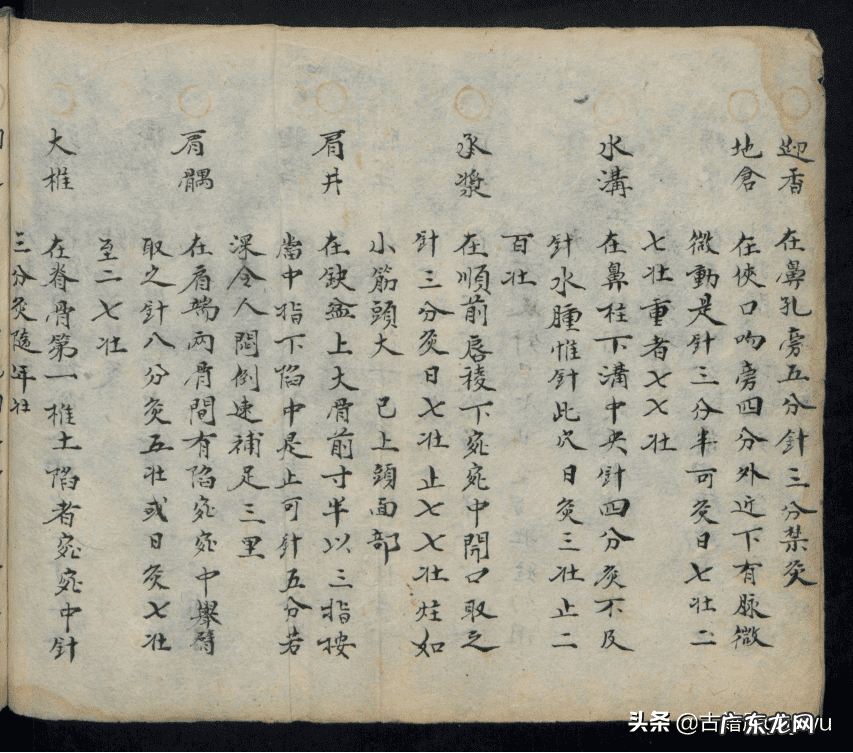 迎香 在鼻孔旁五分針三分禁灸
地倉 在俠口吻旁四分外近下有脉微
微動是針三分半可灸日七壯二
七壯重者七七壯
水溝 在鼻柱下溝中央針四分灸不及
針水腫惟針此穴日灸三壯止二
百壯
承漿 在順前唇稜下宛宛中開口取之
針三分灸日七壯止七七壯炷如
小筋頭大 已上頭面部
肩井 在缺盆上大骨前寸半以三指按
當中指下陷中是止可針五分若
深令人悶倒速補足三里
肩髃 在肩端兩骨間有陷宛宛中舉臂
取之針八分灸五壯或日灸七壯
至二七壯
大椎 在脊骨第一椎上陷者宛宛中針
三分灸隨年壯
头条 @古籍
广东龙网